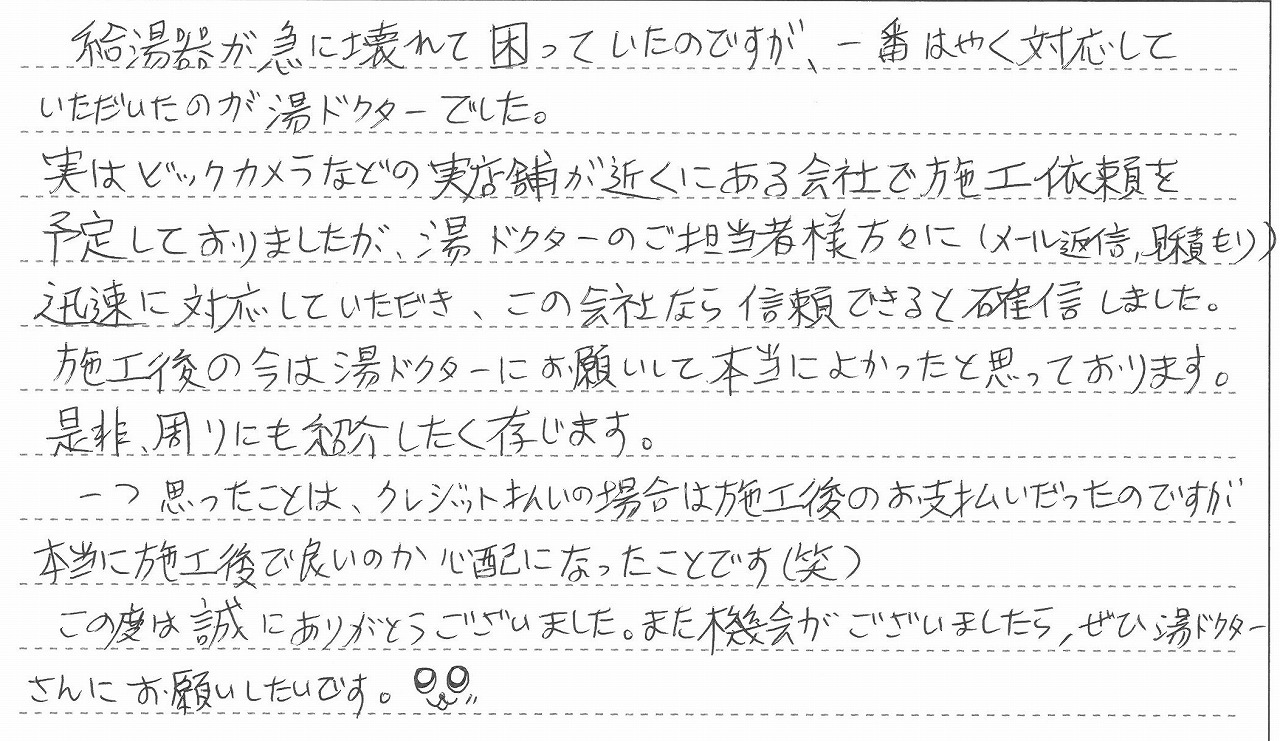 給湯器が急に壊れて困っていたのですが、一番はやく対応して
いただいたのが湯ドクターでした。
実はビックカメラなどの実店舗が近くにある会社で施工依頼を
予定しておりましたが、湯ドクターのご担当者様方々に(メール返信,見積もり)
迅速に対応していただき、この会社なら信頼できると確信しました。
施工後の今は湯ドクターにお願いして本当によかったと思っております。
是非、周りにも紹介したく存じます。
一つ思ったことは、クレジット払いの場合は施工後のお支払いだったのですが
本当に施工後で良いのか心配になったことです(笑)
この度は誠にありがとうございました。また機会がございましたら,ぜひ湯ドクター
さんにお願いしたいです。